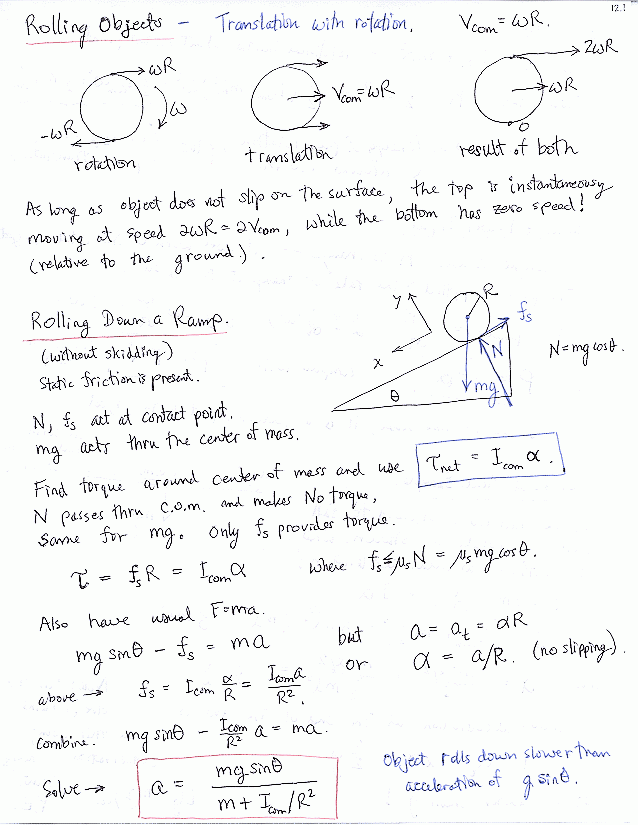 12.1
Rolling Objects - Translation with rotation. Vcom = ωR.
ωR
ω
-ωR
rotation
Vcom = ωR
translation
2ωR
ωR
0
result of both
As long as object does not slip on the surface, the top is instantaneously
moving at speed 2ωR = 2Vcom, while the bottom has zero speed!
(relative to the ground).
Rolling Down a Ramp.
(without skidding)
Static friction is present.
y
x
R
fs
N
mg
θ
N = mg cosθ.
N, fs act at contact point.
mg acts thru the center of mass.
Find torque around center of mass and use τnet = Icom α.
N passes thru c.o.m. and makes No torque,
Same for mg. Only fs provides torque.
τ = fs R = Icom α where fs ≤ μs N = μs mg cosθ.
Also have usual F=ma.
mg sinθ - fs = ma but a = at = αR
or α = a/R. (no slipping).
above → fs = Icom α/R = Icom a/R².
Combine. mg sinθ - Icom/R² a = ma.
Solve → a = mg sinθ / m + Icom/R²
Object rolls down slower than
acceleration of g sinθ.